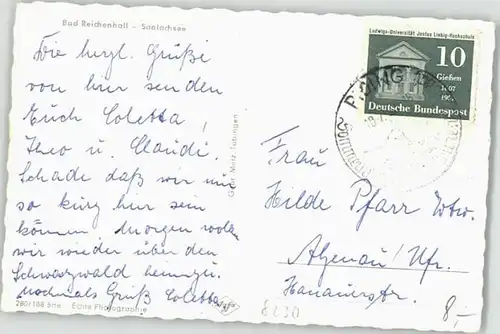 Bad Reichenhall - Saalachsee
Die herzl. Grüße
von hier senden
Euch Coletta,
Theo u. Claudi.
Schade daß wir nur
so kurz hier sein
können, Morgen
wir wieder über den
Schwarzwald
nochmals Gruß Coletta
280/168 Echte Photographie
Gebr. Metz, Tübingen
Ludwigs-Universität Justus Liebig-Hochschule
10
Gießen
1607
Deutsche Bundespost
Frau
Hilde Pfarr Wtw.
Alzenau/Ufr.
Hanauerstr.
8,-